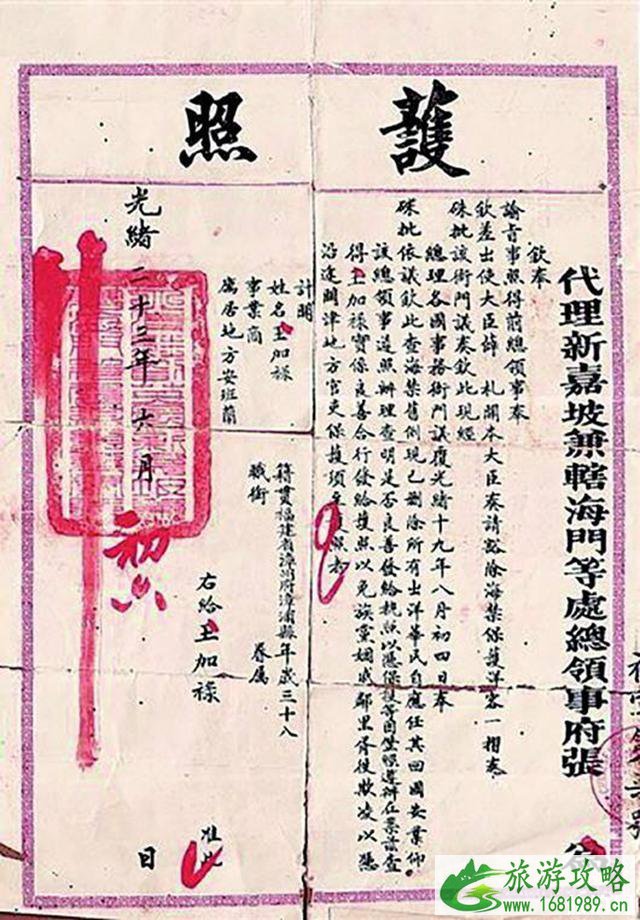 護照
代理新嘉坡兼轄海門等處總領事府張
欽奉
諭旨事照得前總領事奉
欽差出使大臣薛 札開本大臣奏請豁除海禁保護洋客一摺奉
硃批該衙門議奏欽此現經
總理各國事務衙門議覆光緒十九年八月初四日奉
硃批依議欽此查海禁舊例現已刪除所有出洋華民自應任其回國安業仰
該總領事遵照辦理查明是否良善發給執照以憑保護等因茲查
得王加祿實係良善合行發給護照以免族黨姻戚鄰里胥役欺凌以憑
沿途關津地方官吏保護須至護照者
計開
姓名王加祿
事業商
寓居地方安班蘭
籍貫福建省漳州府漳浦縣年歲三十八
職銜 眷屬
右給王加祿 准此
光緒二十三年六月 初六 日
旅游攻略
www.1681989.cn